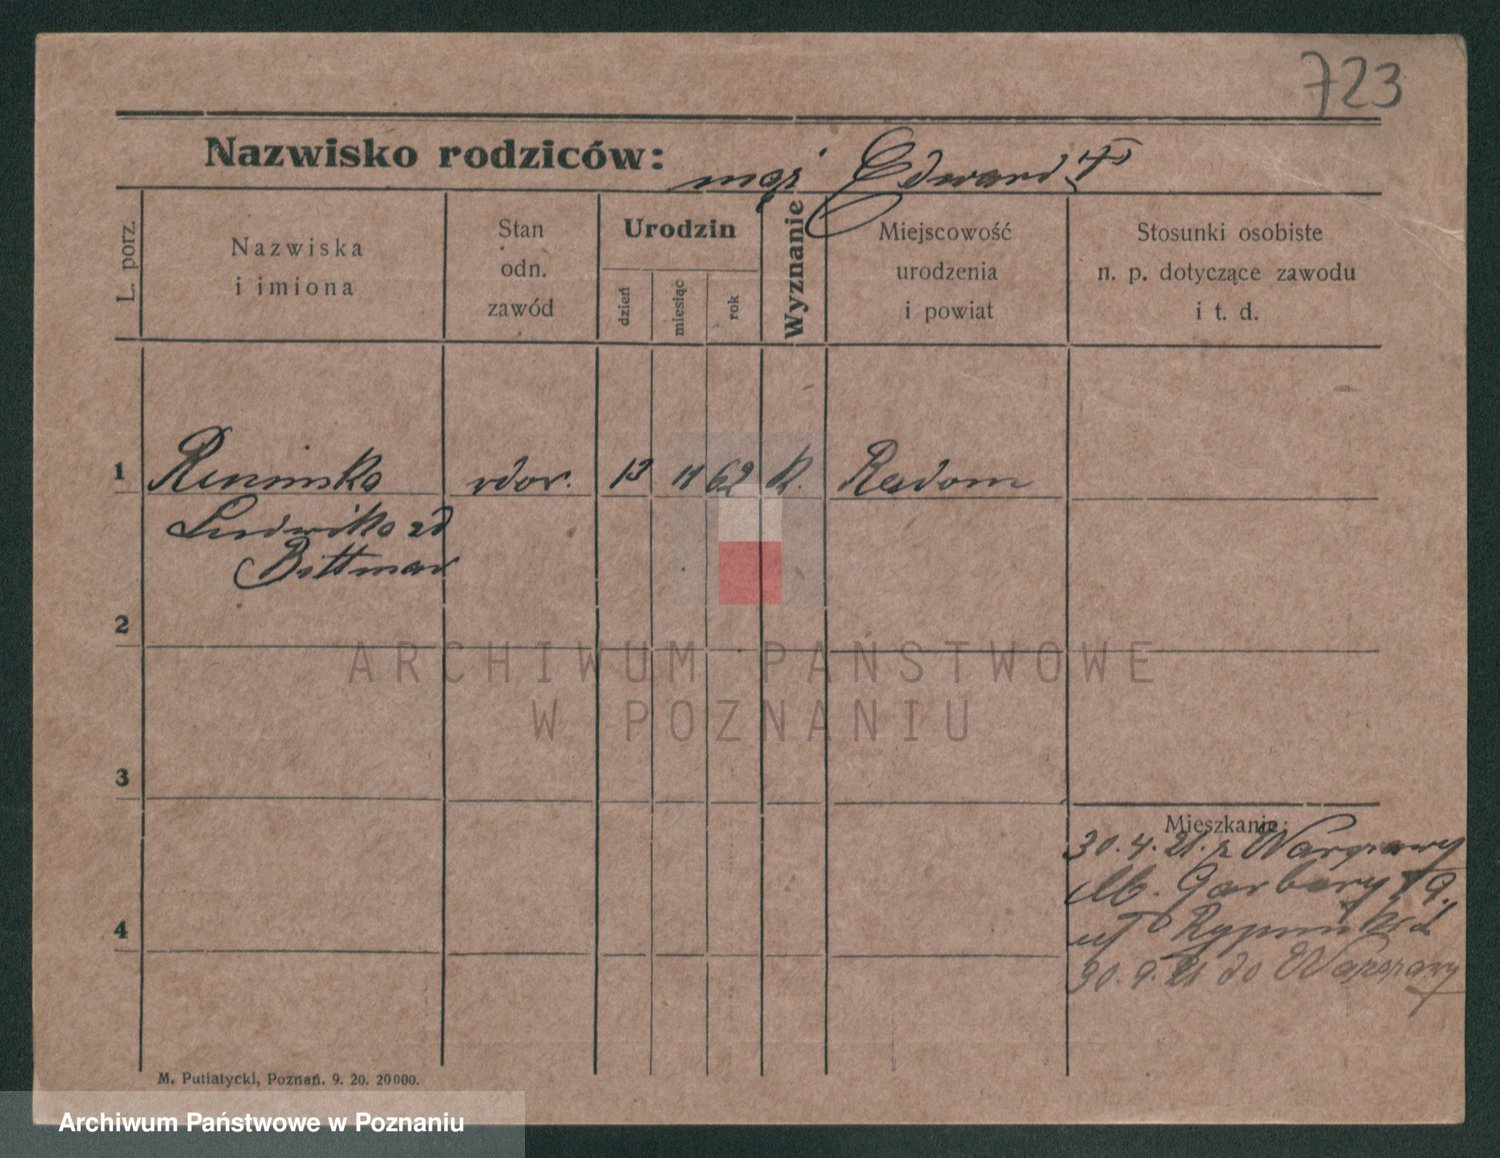 723
Nazwisko rodziców: mąż Edward
L. porz.
Nazwiska
i imiona
Stan
odn.
zawód
Urodzin
dzień
miesiąc
rok
Wyznanie
Miejscowość
urodzenia
i powiat
Stosunki osobiste
n. p. dotyczące zawodu
i t. d.
1 wdow. 13 11 62 k. Radom
Ludwika zd
Bittmar
2
ARCHIWUM PAŃSTWOWE
W POZNANIU
3
Mieszkanie:
30.4.21. z Warszawy
Garbary 19.
4
30.9.21 do Warszawy
M. Putiatycki, Poznań. 9. 20. 20000.
Archiwum Państwowe w Poznaniu